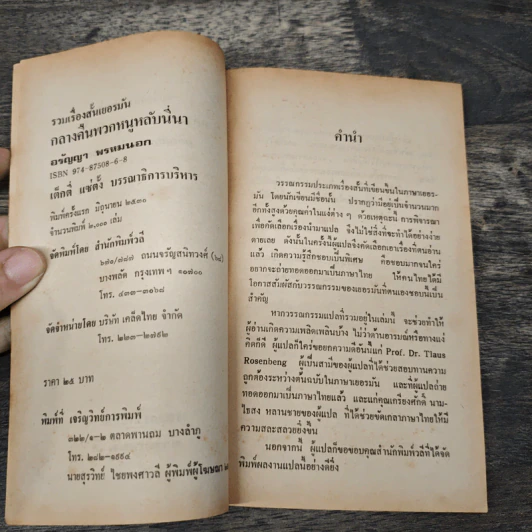 รวมเรื่องสั้นเยอรมัน
กลางคืนพวกหนูหลับนี่นา
อรัญญา พรหมนอก
ISBN 974-87508-6-8
เต็กตี่ แซ่ตั้ง บรรณาธิการบริหาร
พิมพ์ครั้งแรก มิถุนายน ๒๕๓๐
จำนวนพิมพ์ ๒,๐๐๐ เล่ม
จัดพิมพ์โดย สำนักพิมพ์วลี
๖๗๑/๗๗ ถนนจรัญสนิทวงศ์
บางพลัด กรุงเทพฯ ๑๐๗๐๐
โทร. ๔๓๓-๓๑๖๘
จัดจำหน่ายโดย บริษัท เคล็ดไทย จำกัด
โทร. ๒๒๓-๒๗๙๒
ราคา ๒๕ บาท
พิมพ์ที่ เจริญวิทย์การพิมพ์
๓๒๒/๑-๒ ตลาดพานถม บางลำภู
โทร. ๒๘๒-๑๙๙๔
นายสุรวิทย์ ไชยพงศาวลี ผู้พิมพ์ผู้โฆษณา
คำนำ
วรรณกรรมประเภทเรื่องสั้นที่เขียนขึ้นในภาษาเยอร-
มัน โดยนักเขียนมีชื่อนั้น ปรากฏว่ามีอยู่เป็นจำนวนมาก
อีกทั้งสูงด้วยคุณค่าในแง่ต่าง ๆ ด้วยเหตุฉะนี้ การพิจารณา
เพื่อคัดเลือกเรื่องนำมาแปล จึงไม่ใช่สิ่งที่จะทำได้อย่างง่าย
ดายเลย ดังนั้นในครั้งนี้ผู้แปลจึงคัดเลือกเอาเรื่องที่ตนอ่าน
แล้ว เกิดความรู้สึกชอบเป็นพิเศษ คือชอบมากจนใคร่
อยากจะถ่ายทอดออกมาเป็นภาษาไทย ให้คนไทยได้มี
โอกาสสัมผัสกับวรรณกรรมของเยอรมันที่ตนเองชอบนี้เป็น
สำคัญ
หากวรรณกรรมแปลที่รวมอยู่ในเล่มนี้ จะช่วยทำให้
ผู้อ่านเกิดความเพลิดเพลินบ้าง ไม่ว่าด้านอารมณ์หรือทางแง่
คิดก็ดี ผู้แปลก็ใคร่ขอยกความดีอันนี้แก่ Prof. Dr. Tlaus
Rosenbeng ผู้เป็นสามีของผู้แปลที่ได้ช่วยสอบทานความ
ถูกต้องระหว่างต้นฉบับในภาษาเยอรมัน และที่ผู้แปลถ่าย
ทอดออกมาเป็นภาษาไทยแล้ว และแก่คุณเกรียงศักดิ์ นาม-
ไธสง หลานชายของผู้แปล ที่ได้ช่วยขัดเกลาภาษาไทยให้มี
ความสละสลวยยิ่งขึ้น
นอกจากนี้ ผู้แปลก็ขอขอบคุณสำนักพิมพ์วลีที่ได้จัด
พิมพ์ผลงานแปลนี้อย่างดียิ่ง